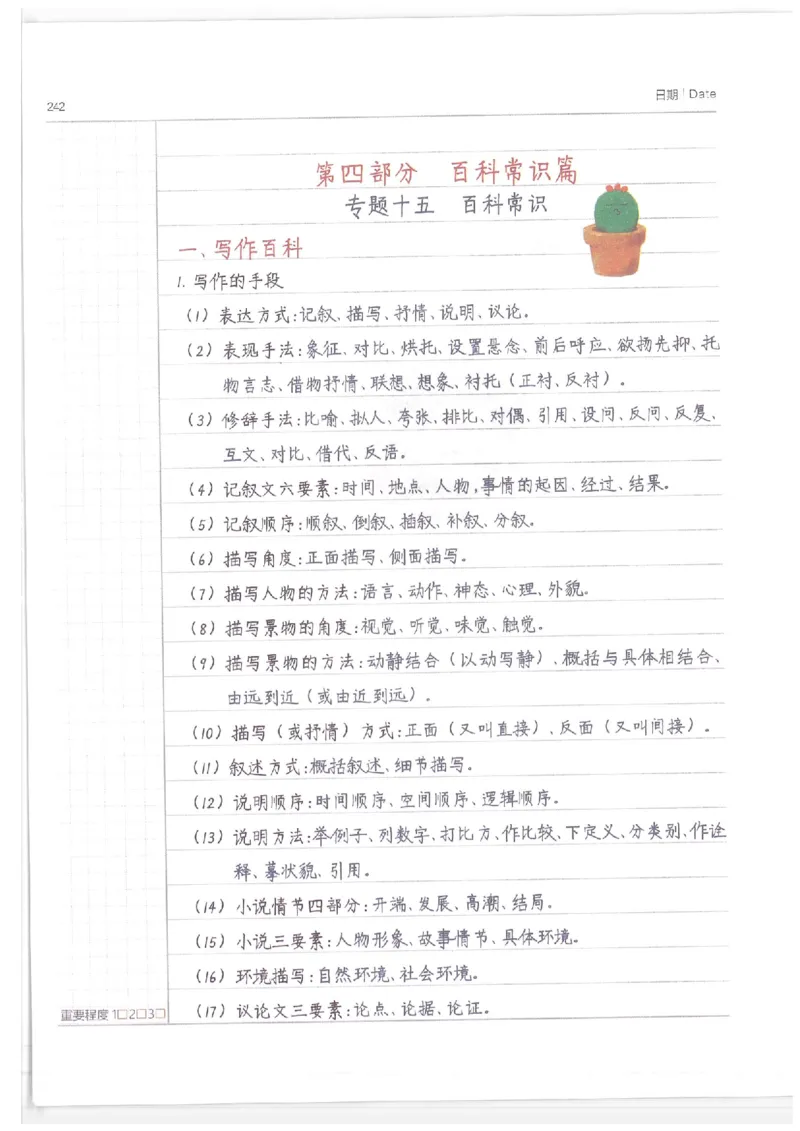 242
日期 | Date
第四部分 百科常识篇
专题十五 百科常识
一、写作百科
1. 写作的手段
(1) 表达方式:记叙、描写、抒情、说明、议论。
(2) 表现手法:象征、对比、烘托、设置悬念、前后呼应、欲扬先抑、托
物言志、借物抒情、联想、想象、衬托(正衬、反衬)。
(3) 修辞手法:比喻、拟人、夸张、排比、对偶、引用、设问、反问、反复、
互文、对比、借代、反语。
(4) 记叙文六要素:时间、地点、人物,事情的起因、经过、结果。
(5) 记叙顺序:顺叙、倒叙、插叙、补叙、分叙。
(6) 描写角度:正面描写、侧面描写。
(7) 描写人物的方法:语言、动作、神态、心理、外貌。
(8) 描写景物的角度:视觉、听觉、味觉、触觉。
(9) 描写景物的方法:动静结合(以动写静)、概括与具体相结合、
由远到近(或由近到远)。
(10) 描写(或抒情)方式:正面(又叫直接)、反面(又叫间接)。
(11) 叙述方式:概括叙述、细节描写。
(12) 说明顺序:时间顺序、空间顺序、逻辑顺序。
(13) 说明方法:举例子、列数字、打比方、作比较、下定义、分类别、作诠
释、摹状貌、引用。
(14) 小说情节四部分:开端、发展、高潮、结局。
(15) 小说三要素:人物形象、故事情节、具体环境。
(16) 环境描写:自然环境、社会环境。
(17) 议论文三要素:论点、论据、论证。
重要程度 1□2□3□